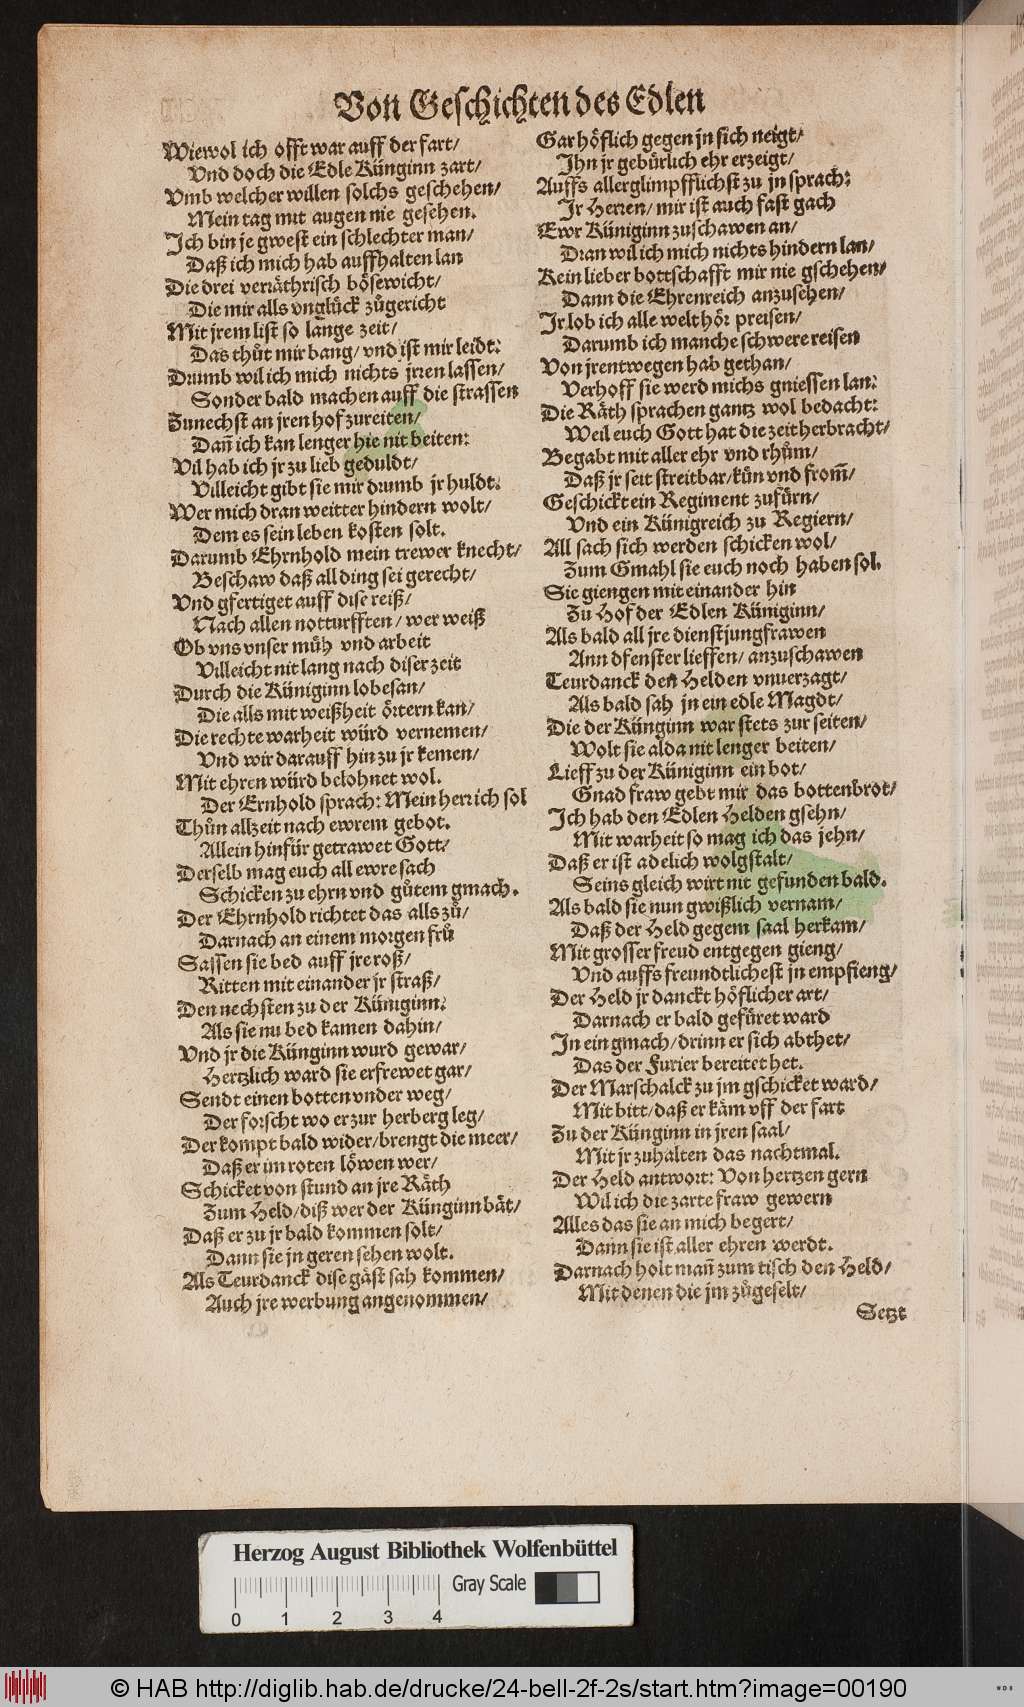 Von Geschichten des Edlen
Wiewol ich offt war auff der fart/
Vnd doch die Edle Künginn zart/
Vmb welcher willen solchs geschehen/
Mein tag mit augen nie gesehen.
Ich bin je gwest ein schlechter man/
Daß ich mich hab auffhalten lan
Die drei verräthrisch bösewicht/
Die mir alls vnglück zůgericht
Mit jrem list so lange zeit/
Das thůt mir bang/ vnd ist mir leidt:
Drumb wil ich mich nichts jrren lassen/
Sonder bald machen auff die strassen
Zunechst an jren hof zureiten/
Dañ ich kan lenger hie nit beiten:
Vil hab ich jr zu lieb geduldt/
Villeicht gibt sie mir drumb jr huldt:
Wer mich dran weitter hindern wolt/
Dem es sein leben kosten solt.
Darumb Ehrnhold mein trewer knecht/
Beschaw daß all ding sei gerecht/
Vnd gfertiget auff dise reiß/
Nach allen notturfften/ wer weiß
Ob vns vnser müh vnd arbeit
Villeicht nit lang nach diser zeit
Durch die Küniginn lobesan/
Die alls mit weißheit örtern kan/
Die rechte warheit würd vernemen/
Vnd wir darauff hin zu jr kemen/
Mit ehren würd belohnet wol.
Der Ernhold sprach: Mein herr ich sol
Thůn allzeit nach ewrem gebot.
Allein hinfür getrawet Gott/
Derselb mag euch all ewre sach
Schicken zu ehrn vnd gůtem gmach.
Der Ehrnhold richtet das alls zů/
Darnach an einem morgen frů
Sassen sie bed auff jre roß/
Ritten mit einander jr straß/
Den nechsten zu der Küniginn:
Als sie nu bed kamen dahin/
Vnd jr die Künginn wurd gewar/
Hertzlich ward sie erfrewet gar/
Sendt einen botten vnder weg/
Der forscht wo er zur herberg leg/
Der kompt bald wider/ brengt die meer/
Daß er im roten löwen wer/
Schicket von stund an jre Räth
Zum Held/ diß wer der Künginn bät/
Daß er zu jr bald kommen solt/
Dann sie jn geren sehen wolt.
Als Teurdanck dise gäst sah kommen/
Auch jre werbung angenommen/
Gar höflich gegen jn sich neigt/
Ihn jr gebürlich ehr erzeigt/
Auffs allerglimpfflichst zu jn sprach:
Ir Herren/ mir ist auch fast gach
Ewr Küniginn zuschawen an/
Dran wil ich mich nichts hindern lan/
Kein lieber bottschafft mir nie gschehen/
Dann die Ehrenreich anzusehen/
Ir lob ich alle welt hör preisen/
Darumb ich manche schwere reisen
Von jrentwegen hab gethan/
Verhoff sie werd michs gniessen lan:
Die Räth sprachen gantz wol bedacht:
Weil euch Gott hat die zeit herbracht/
Begabt mit aller ehr vnd rhům/
Daß jr seit streitbar/ kün vnd from̃/
Geschickt ein Regiment zufürn/
Vnd ein Künigreich zu Regiern/
All sach sich werden schicken wol/
Zum Gmahl sie euch noch haben sol.
Sie giengen mit einander hin
Zu Hof der Edlen Küniginn/
Als bald all jre dienstjungfrawen
Ann dfenster lieffen/ anzuschawen
Teurdanck den Helden vnuerzagt/
Als bald sah jn ein edle Magdt/
Die der Künginn war stets zur seiten/
Wolt sie alda nit lenger beiten/
Lieff zu der Küniginn ein bot/
Gnad fraw gebt mir das bottenbrot/
Ich hab den Edlen Helden gsehn/
Mit warheit so mag ich das jehn/
Daß er ist adelich wolgstalt/
Seins gleich wirt nit gefunden bald.
Als bald sie nun gwißlich vernam/
Daß der Held gegem saal herkam/
Mit grosser freud entgegen gieng/
Vnd auffs freundtlichest jn empfieng/
Der Held jr danckt höflicher art/
Darnach er bald gefüret ward
In ein gmach/ drinn er sich abthet/
Das der Furier bereitet het.
Der Marschalck zu jm gschicket ward/
Mit bitt/ daß er käm vff der fart
Zu der Künginn in jren saal/
Mit jr zuhalten das nachtmal.
Der Held antwort: Von hertzen gern
Wil ich die zarte fraw gewern
Alles das sie an mich begert/
Dann sie ist aller ehren werdt.
Darnach holt mañ zum tisch den Held/
Mit denen die jm zůgeselt/
Setzt
Herzog August Bibliothek Wolfenbüttel
Gray Scale
0 1 2 3 4
© HAB http://diglib.hab.de/drucke/24-bell-2f-2s/start.htm?image=00190